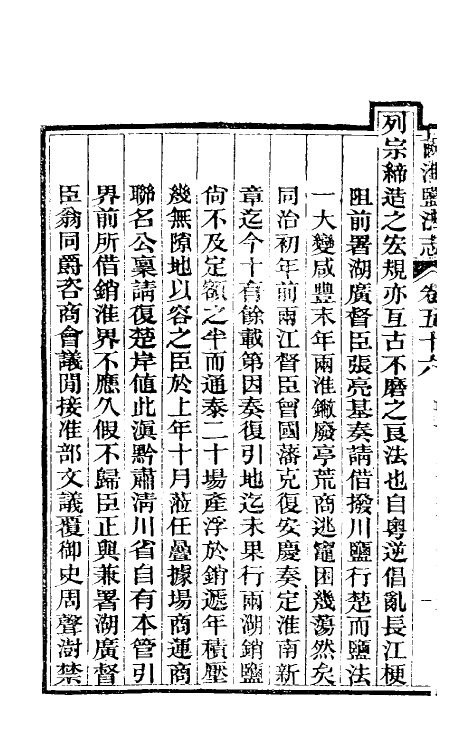 兩淮鹽法志 卷五十六
列宗締造之宏規亦亙古不磨之良法也自粵逆倡亂長江梗
阻前署湖廣督臣張亮基奏請借撥川鹽行楚而鹽法
一大變咸豐末年兩淮鏾廢亭荒商逃竈困幾蕩然矣
同治初年前兩江督臣曾國藩克復安慶奏定淮南新
章迄今十有餘載第因奏復引地迄未果行兩湖銷鹽
尙不及定額之半而通泰二十場產浮於銷遞年積壓
幾無隙地以容之臣於上年十月蒞任疊據場商運商
聯名公稟請復楚岸值此滇黔肅清川省自有本管引
界前所借銷淮界不應久假不歸臣正與兼署湖廣督
臣翁同爵咨商會議閒接准部文議覆御史周聲澍禁